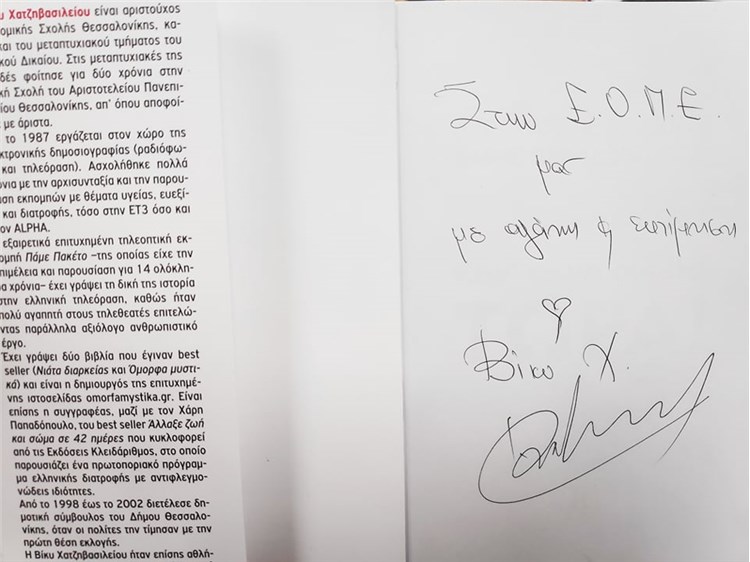 υ Χατζηβασιλείου είναι αριστούχος
ομικής Σχολής Θεσσαλονίκης, κα-
και του μεταπτυχιακού τμήματος του
κού Δικαίου. Στις μεταπτυχιακές της
δές φοίτησε για δύο χρόνια στην
κή Σχολή του Αριστοτελείου Πανεπι-
ίου Θεσσαλονίκης, απ' όπου αποφοί-
ε με άριστα.
το 1987 εργάζεται στον χώρο της
κτρονικής δημοσιογραφίας (ραδιόφω-
και τηλεόραση). Ασχολήθηκε πολλά
όνια με την αρχισυνταξία και την παρου-
ση εκπομπών με θέματα υγείας, ευεξί-
και διατροφής, τόσο στην ΕΤ3 όσο και
ον ALPHA.
εξαιρετικά επιτυχημένη τηλεοπτική εκ-
ομπή Πάμε Πακέτο –της οποίας είχε την
πιμέλεια και παρουσίαση για 14 ολόκλη-
ρα χρόνια– έχει γράψει τη δική της ιστορία
στην ελληνική τηλεόραση, καθώς ήταν
πολύ αγαπητή στους τηλεθεατές επιτελώ-
ντας παράλληλα αξιόλογο ανθρωπιστικό
έργο.
Έχει γράψει δύο βιβλία που έγιναν best
seller (Νιάτα διαρκείας και Όμορφα μυστι-
κά) και είναι η δημιουργός της επιτυχημέ-
νης ιστοσελίδας omorfamystika.gr. Είναι
επίσης η συγγραφέας, μαζί με τον Χάρη
Παπαδόπουλο, του best seller Άλλαξε ζωή
και σώμα σε 42 ημέρες που κυκλοφορεί
από τις Εκδόσεις Κλειδάριθμος, στο οποίο
παρουσιάζει ένα πρωτοποριακό πρόγραμ-
μα ελληνικής διατροφής με αντιφλεγμο-
νώδεις ιδιότητες.
Από το 1998 έως το 2002 διετέλεσε δη-
μοτική σύμβουλος του Δήμου Θεσσαλο-
νίκης, όταν οι πολίτες την τίμησαν με την
πρώτη θέση εκλογής.
Η Βίκυ Χατζηβασιλείου ήταν επίσης αθλή-
Στην Ε.Ο.Μ.Ε.
μας
με αγάπη & εκτίμηση
Βίκυ Χ.